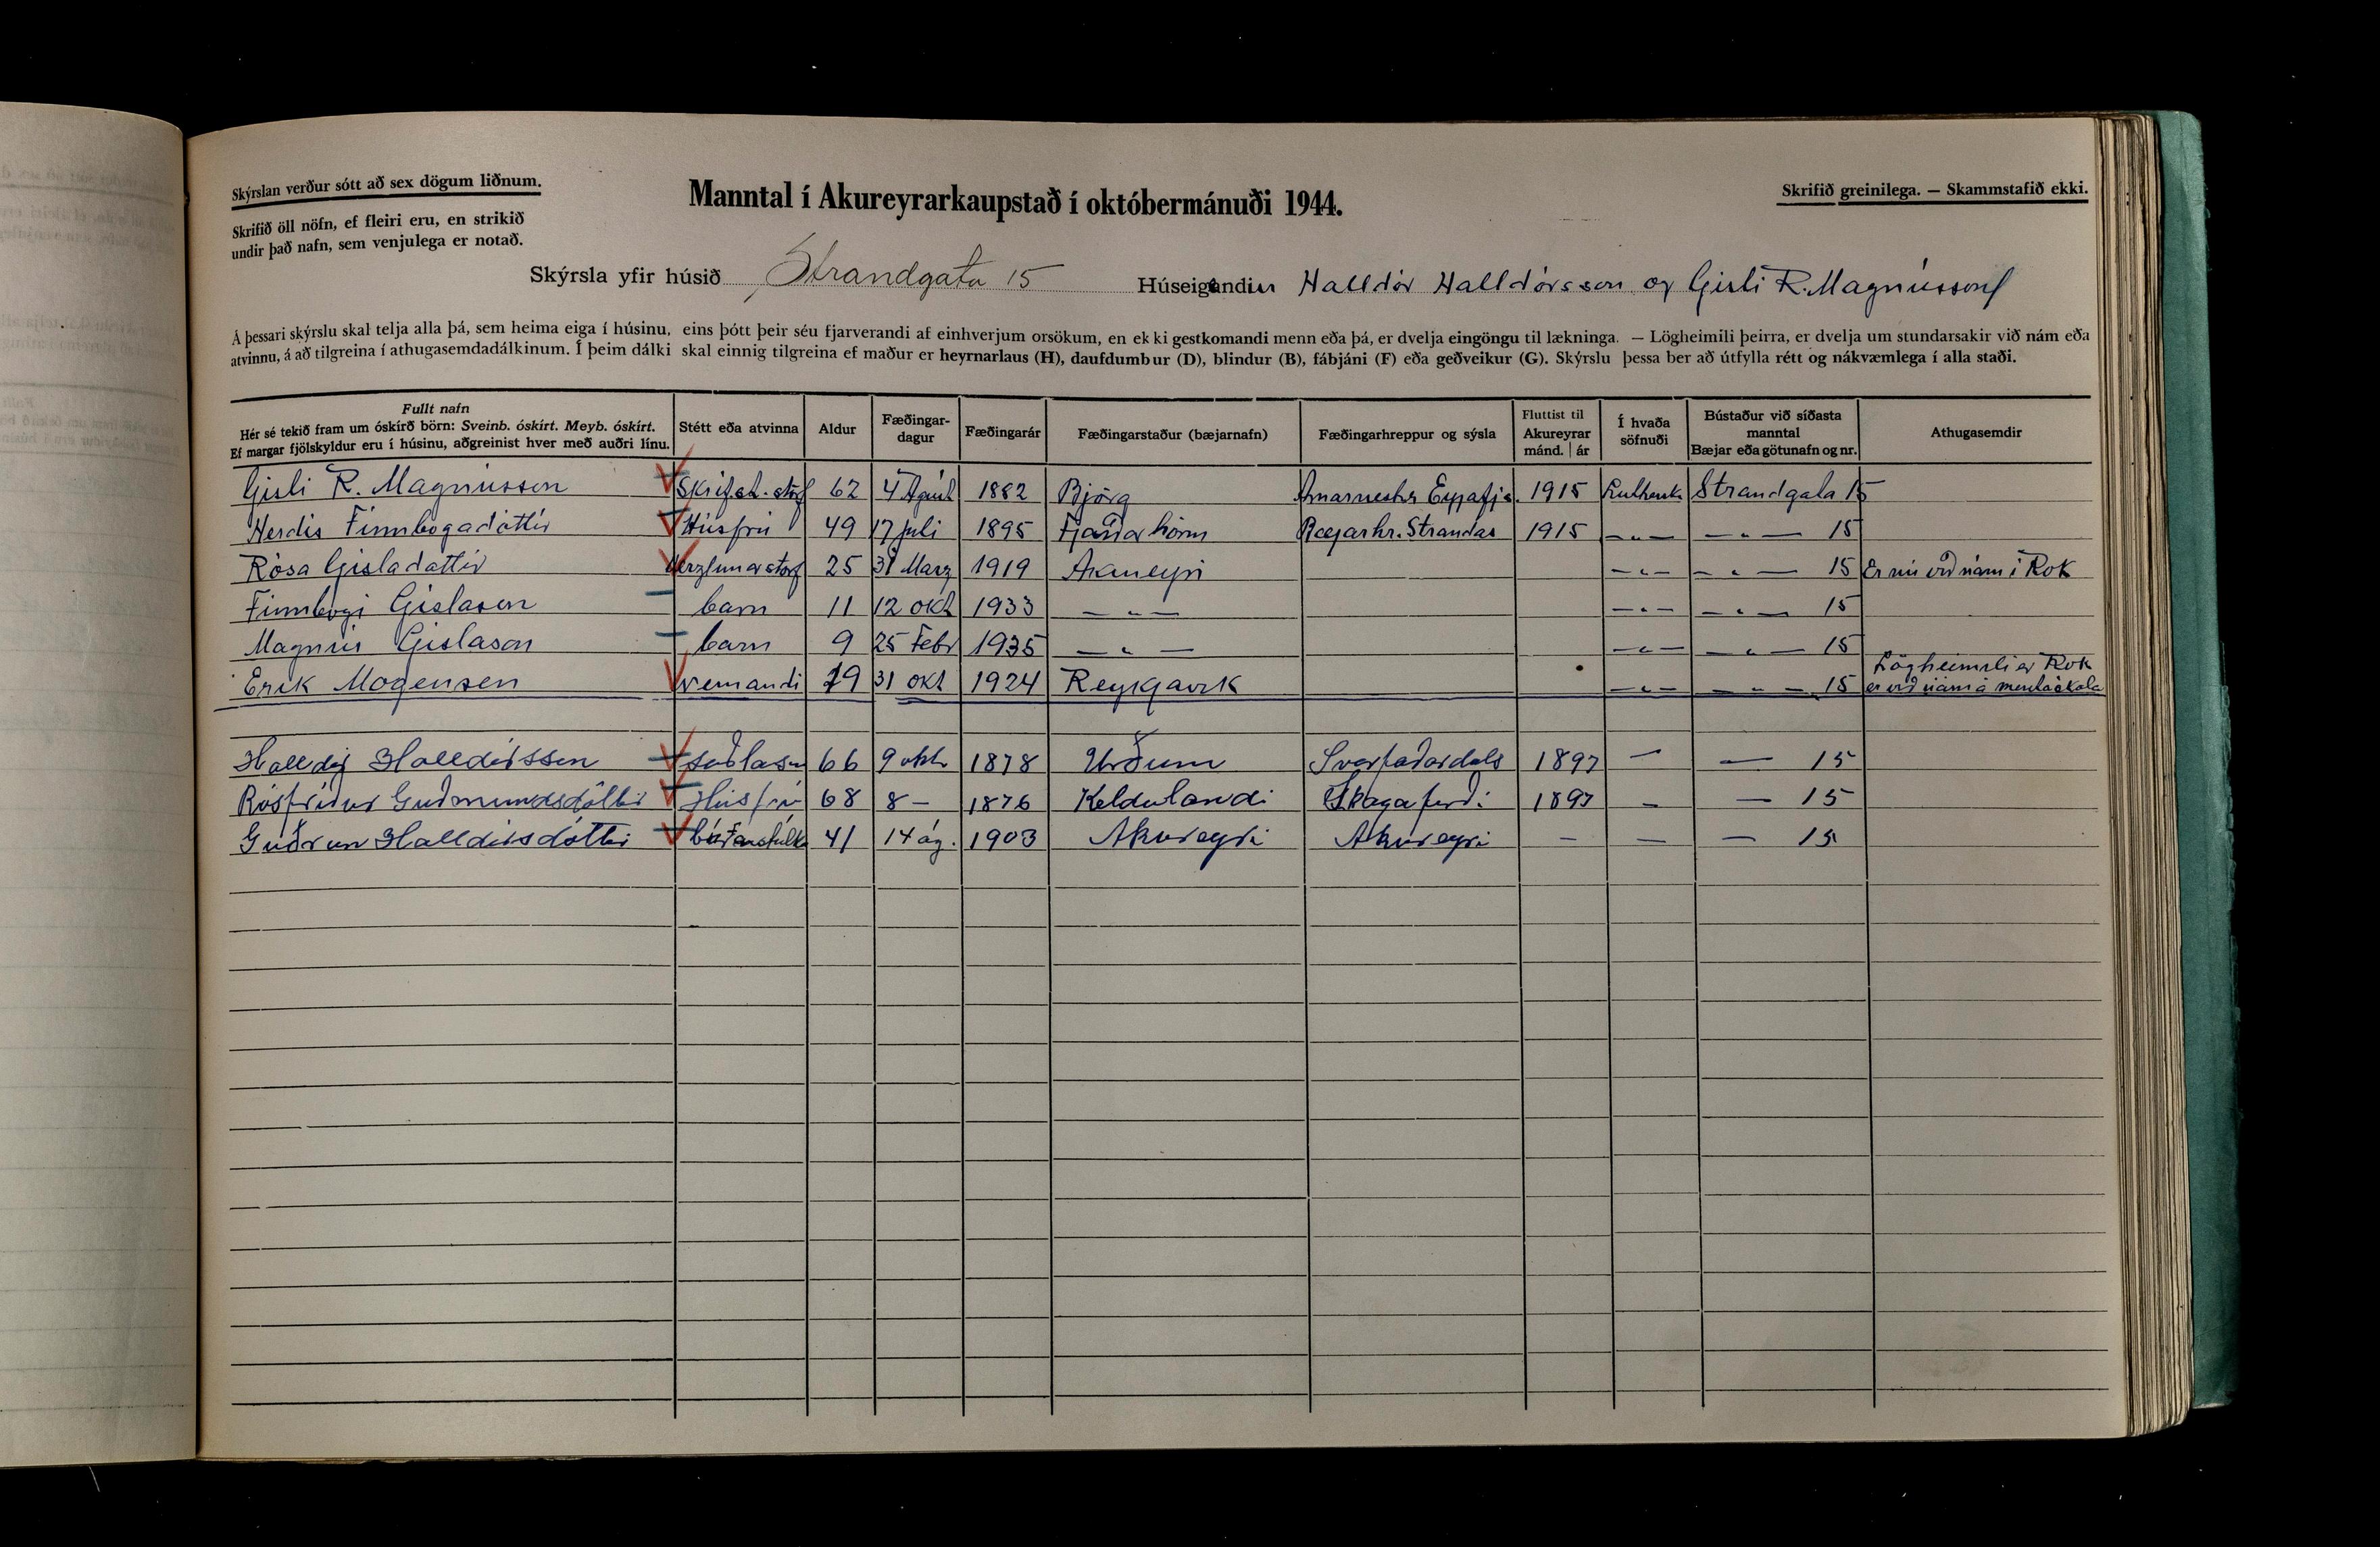 Skýrslan verður sótt að sex dögum liðnum.
Skrifið öll nöfn, ef fleiri eru, en strikið
undir það nafn, sem venjulega er notað.
Manntal í Akureyrarkaupstað í októbermánuði 1944.
Skrifið greinilega. — Skammstafið ekki.
Skýrsla yfir húsið Strandgata 15 Húseigendur Halldór Halldórsson og Gísli R. Magnússon
Á þessari skýrslu skal telja alla þá, sem heima eiga í húsinu, eins þótt þeir séu fjarverandi af einhverjum orsökum, en ekki gestkomandi menn eða þá, er dvelja eingöngu til lækninga. — Lögheimili þeirra, er dvelja um stundarsakir við nám eða
atvinnu, á að tilgreina í athugasemdadálkinum. Í þeim dálki skal einnig tilgreina ef maður er heyrnarlaus (H), daufdumbur (D), blindur (B), fábjáni (F) eða geðveikur (G). Skýrslu þessa ber að útfylla rétt og nákvæmlega í alla staði.
Fullt nafn
Hér sé tekið fram um óskírð börn: Sveinb. óskírt. Meyb. óskírt.
Ef margar fjölskyldur eru í húsinu, aðgreinist hver með auðri línu.
Stétt eða atvinna
Aldur
Fæðingar-
dagur
Fæðingarár
Fæðingarstaður (bæjarnafn)
Fæðingarhreppur og sýsla
Fluttist til
Akureyrar
mánd. | ár
Í hvaða
söfnuði
Bústaður við síðasta
manntal
Bæjar eða götunafn og nr.
Athugasemdir
Gísli R. Magnússon Skrifst. störf 62 4 Apríl 1882 Björg Arnarneshr Eyjafjs. 1915 Strandgata 15
Herdís Finnbogadóttir Húsfrú 49 17 júlí 1895 Fjarðarhorn Bæjarhr. Strandas 1915 — „ — — „ — 15
Rósa Gísladóttir Verzlunarstörf 25 31 Marz 1919 Akureyri — „ — — „ — 15 Er nú við nám í Rvk
Finnbogi Gíslason barn 11 12 okt 1933 — „ — — „ — — „ — 15
Magnús Gíslason barn 9 25 Febr 1935 — „ — — „ — — „ — 15
Erik Mogensen nemandi 19 31 okt 1924 Reykjavík — „ — — „ — 15 Lögheimili er Rvk
er við nám á menntaskóla
Halldór Halldórsson söðlasm 66 9 okt 1878 Urðum Svarfaðardals 1897 — — 15
Rósfríður Guðmundsdóttir Húsfrú 68 8 — 1876 Keldulandi Skagafirði 1897 — — 15
Guðrún Halldórsdóttir búðarstúlka 41 14 ág. 1903 Akureyri Akureyri — — — 15